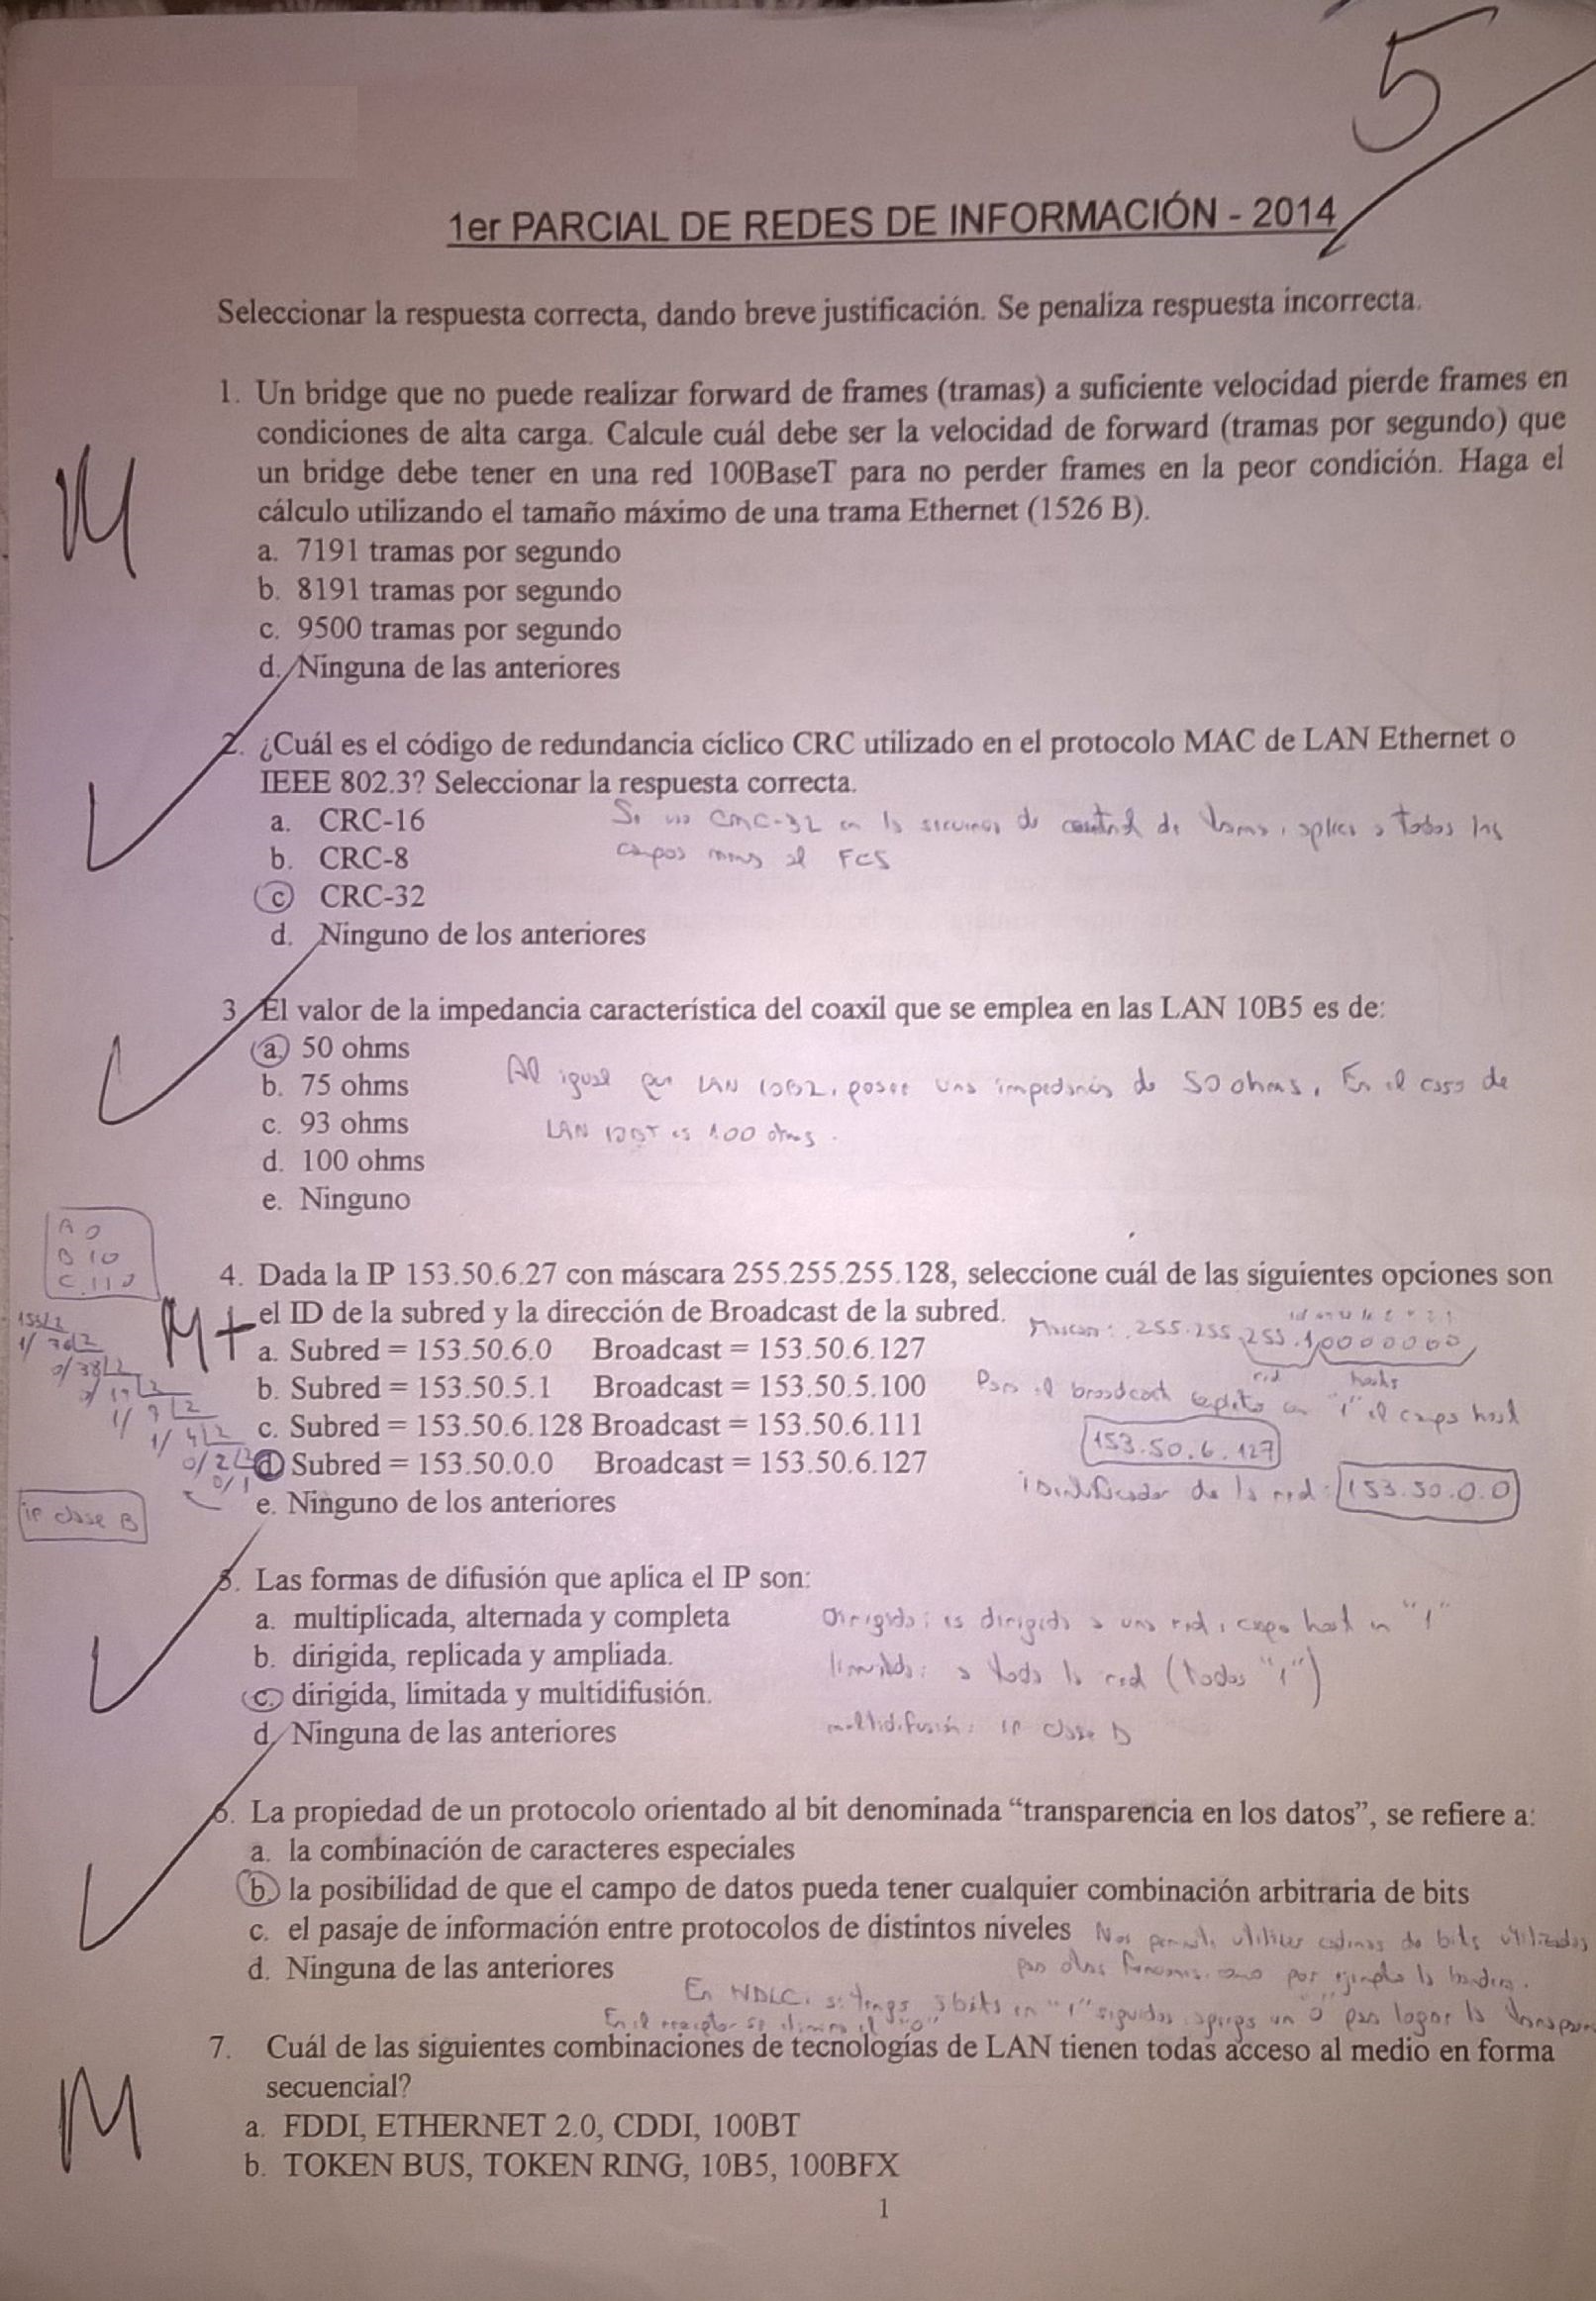 5
1er PARCIAL DE REDES DE INFORMACIÓN - 2014
Seleccionar la respuesta correcta, dando breve justificación. Se penaliza respuesta incorrecta.
1. Un bridge que no puede realizar forward de frames (tramas) a suficiente velocidad pierde frames en
condiciones de alta carga. Calcule cuál debe ser la velocidad de forward (tramas por segundo) que
un bridge debe tener en una red 100BaseT para no perder frames en la peor condición. Haga el
cálculo utilizando el tamaño máximo de una trama Ethernet (1526 B).
M
a. 7191 tramas por segundo
b. 8191 tramas por segundo
c. 9500 tramas por segundo
d. Ninguna de las anteriores
2. ¿Cuál es el código de redundancia cíclico CRC utilizado en el protocolo MAC de LAN Ethernet o
IEEE 802.3? Seleccionar la respuesta correcta.
a. CRC-16
b. CRC-8
c CRC-32
d. Ninguno de los anteriores
Se usa CRC-32 en la de control de trama, aplica a todos los
campos menos al FCS
3. El valor de la impedancia característica del coaxil que se emplea en las LAN 10B5 es de:
a. 50 ohms
b. 75 ohms
c. 93 ohms
d. 100 ohms
e. Ninguno
Al igual que LAN 10B2, posee una impedancia de 50 ohms. En el caso de
LAN 10BT es 100 ohms.
A 0
B 10
C 110
4. Dada la IP 153.50.6.27 con máscara 255.255.255.128, seleccione cuál de las siguientes opciones son
el ID de la subred y la dirección de Broadcast de la subred.
M+
a. Subred = 153.50.6.0 Broadcast = 153.50.6.127
b. Subred = 153.50.5.1 Broadcast = 153.50.5.100
c. Subred = 153.50.6.128 Broadcast = 153.50.6.111
d Subred = 153.50.0.0 Broadcast = 153.50.6.127
e. Ninguno de los anteriores
Mascara: 255.255.255.10000000
red hosts
Para el broadcast completo con "1" el campo host
153.50.6.127
identificador de la red: 153.50.0.0
ip clase B
5. Las formas de difusión que aplica el IP son:
a. multiplicada, alternada y completa
b. dirigida, replicada y ampliada.
c. dirigida, limitada y multidifusión.
d. Ninguna de las anteriores
Dirigida: es dirigida a una red, campo host en "1"
limitada: a toda la red (todos "1")
multidifusión: IP clase D
6. La propiedad de un protocolo orientado al bit denominada “transparencia en los datos”, se refiere a:
a. la combinación de caracteres especiales
b. la posibilidad de que el campo de datos pueda tener cualquier combinación arbitraria de bits
c. el pasaje de información entre protocolos de distintos niveles
d. Ninguna de las anteriores
Nos permite utilizar cadenas de bits utilizadas
para otras funciones, como por ejemplo la bandera.
En HDLC, si tengo 5 bits en "1" seguidos, agrego un "0" para lograr la
En el receptor se elimina el "0"
7. Cuál de las siguientes combinaciones de tecnologías de LAN tienen todas acceso al medio en forma
secuencial?
M
a. FDDI, ETHERNET 2.0, CDDI, 100BT
b. TOKEN BUS, TOKEN RING, 10B5, 100BFX
1